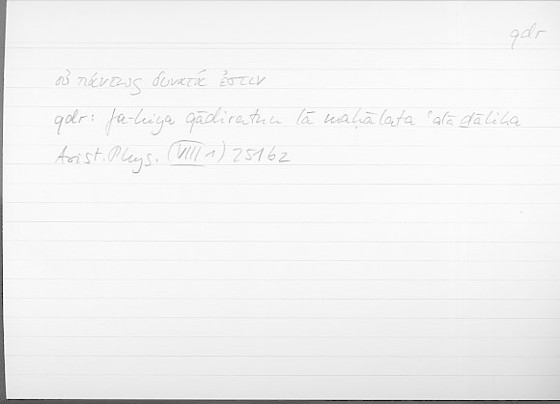 qdr
οὐ πάντως δυνατά ἐστιν
qdr: fa-hiya qādiratun lā maḥālata ʿalā ḏālika
Arist. Phys. (VIII 1) 251b2